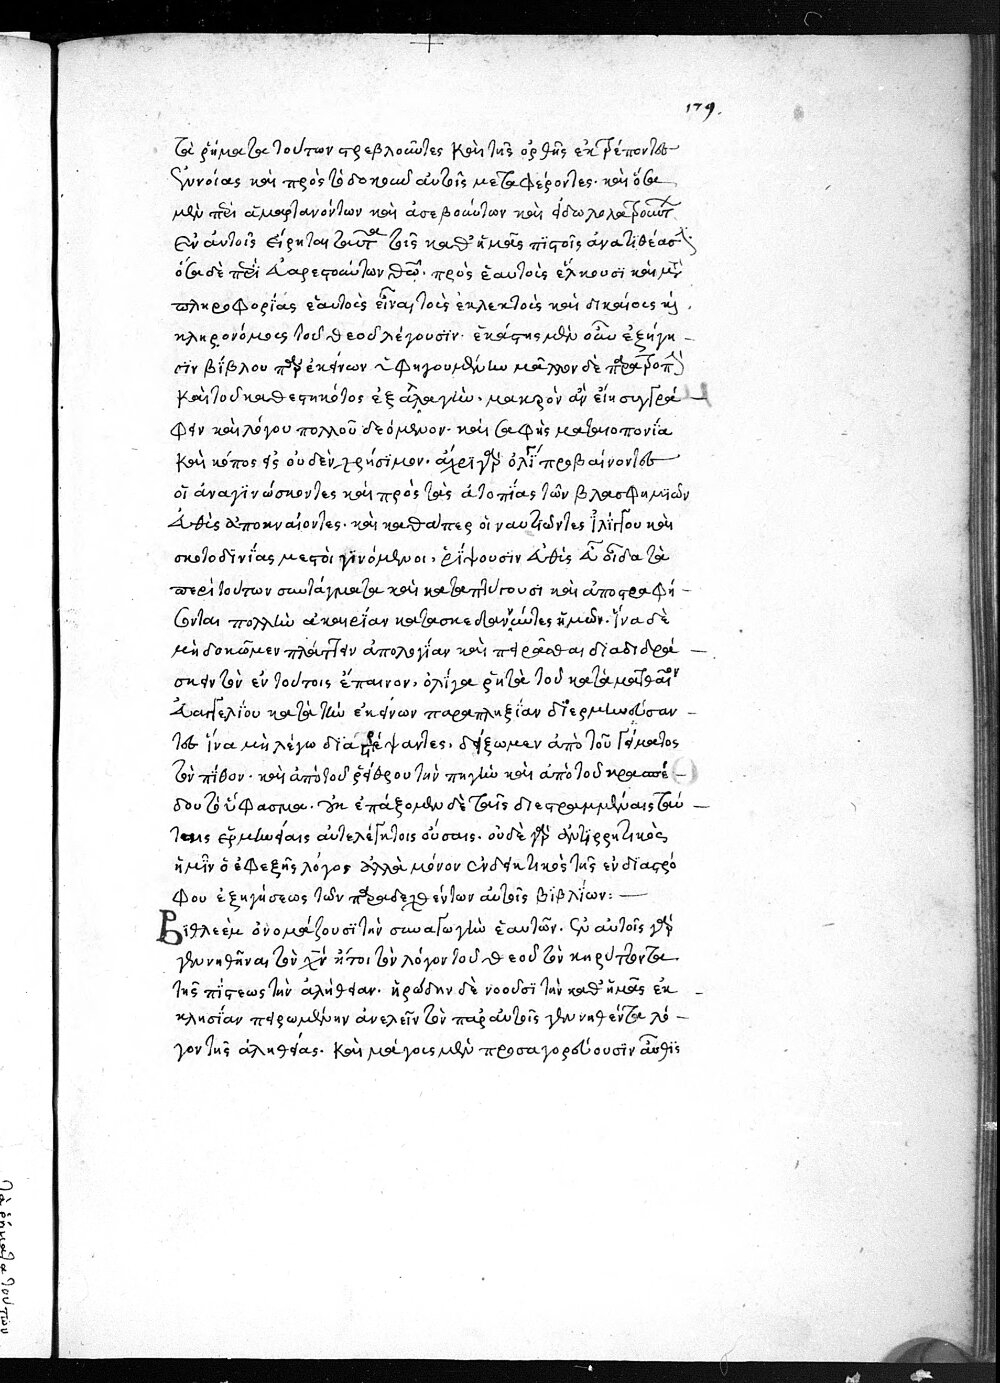 179.
τὰ ῥήματα τούτων στρεβλοῦντες καὶ τῆς ὀρθῆς ἐκτρέποντες
ἐννοίας καὶ πρὸς τὸ δοκοῦν αὐτοῖς μεταφέροντες. καὶ ὅσα
μὲν περὶ ἁμαρτανόντων καὶ ἀσεβούντων καὶ εἰδωλολατρούντων
ἐν αὐτοῖς εἴρηται ταῦτα τοῖς καθ' ἡμᾶς πιστοῖς ἀνατιθέασιν
ὅσα δὲ περὶ εὐαρεστούντων θεῶ. πρὸς ἑαυτοὺς ἕλκουσι καὶ μετὰ
πληροφορίας ἑαυτοὺς εἶναι τοὺς ἐκλεκτοὺς καὶ δικαίους καὶ
κληρονόμους τοῦ θεοῦ λέγουσιν. ἑκάστης μὲν οὖν ἐξήγη-
σιν βίβλου παρ' ἐκείνων ὑφηγουμένην μᾶλλον δὲ παρατροπὴν
καὶ τοῦ καθεστηκότος ἐξαλλαγὴν. μακρὸν ἂν εἴη συγγρά-
φειν καὶ λόγου πολλοῦ δεόμενον. καὶ σαφὴς ματαιοπονία
καὶ κόπος εἰς οὐδὲν χρήσιμον. ἄχρι γὰρ ὀλίγου προβαίνοντες
οἱ ἀναγινώσκοντες καὶ πρὸς τὰς ἀτοπίας τῶν βλασφημιῶν
εὐθὺς ἀποκναίοντες. καὶ καθάπερ οἱ ναυτιῶντες ἰλίγγου καὶ
σκοτοδινίας μεστοὶ γινόμενοι, ῥίψουσιν εὐθὺς εὖ οἶδα τὰ
περὶ τούτων συντάγματα καὶ καταπτύσουσι καὶ ἀποστραφή-
σονται πολλὴν ἀκαιρίαν κατασκεδαννύντες ἡμῶν. ἵνα δὲ
μὴ δοκῶμεν πλάττειν ἀπολογίαν καὶ πειρᾶσθαι διαδιδρά-
σκειν τὸν ἐν τούτοις ἔπαινον, ὀλίγα ῥητὰ τοῦ κατὰ ματθαῖον
εὐαγγελίου κατὰ τὴν ἐκείνων παραπληξίαν διερμηνεύσαν-
τες ἵνα μὴ λέγω διαστρέψαντες, δείξωμεν ἀπὸ τοῦ γεύματος
τὸν πίθον. καὶ ἀπὸ τοῦ ῥείθρου τὴν πηγὴν καὶ ἀπὸ τοῦ κρασπέ-
δου τὸ ὕφασμα. οὐκ ἐπάξομεν δὲ ταῖς διεστραμμέναις ταύ-
ταις ἑρμηνείαις αὐτελέγκτοις οὔσαις. οὐδὲ γὰρ ἀντιρρητικὸς
ἡμῖν ὁ ἐφεξῆς λόγος ἀλλὰ μόνον ἐνδεικτικὸς τῆς ἐνδιαστρό-
φου ἐξηγήσεως τῶν παραδεχθέντων αὐτοῖς βιβλίων:
Βιθλεὲμ ὀνομάζουσι τὴν συναγωγὴν ἑαυτῶν. ἐν αὐτοῖς γὰρ
γεννηθῆναι τὸν χν ἤτοι τὸν λόγον τοῦ θεοῦ τὸν κηρύττοντα
τῆς πίστεως τὴν ἀλήθειαν. ἡρώδην δὲ νοοῦσι τὴν καθ' ἡμᾶς ἐκ-
κλησίαν πειρωμένην ἀνελεῖν τὸν παρ' αὐτοῖς γεννηθέντα λό-
γον τῆς ἀληθείας. καὶ μάγους μὲν προσαγορεύουσιν αὖθις